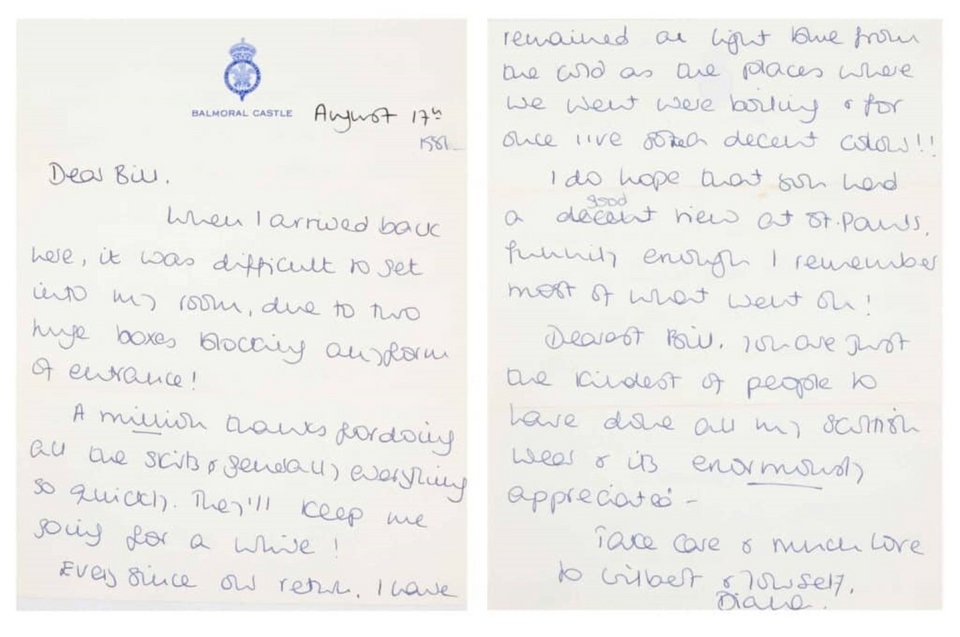 BALMORAL CASTLE
August 17th
1981
Dear Bill.
When I arrived back
here, it was difficult to get
into my room, due to two
huge boxes blocking any form
of entrance!
A million thanks for doing
all the skirts & generally everything
so quickly. They'll keep me
going for a while!
Every since our return, I have
remained a light blue from
the cold as the places where
we went were boiling & for
once I've gotten decent colour!!
I do hope that you had
good
a decent view at St. Pauls,
funnily enough I remember
most of what went on!
Dearest Bill, you are just
the kindest of people to
have done all my scottish
wear & its enormously
appreciated -
Take care & much love
to Wilbert & yourself,
Diana.